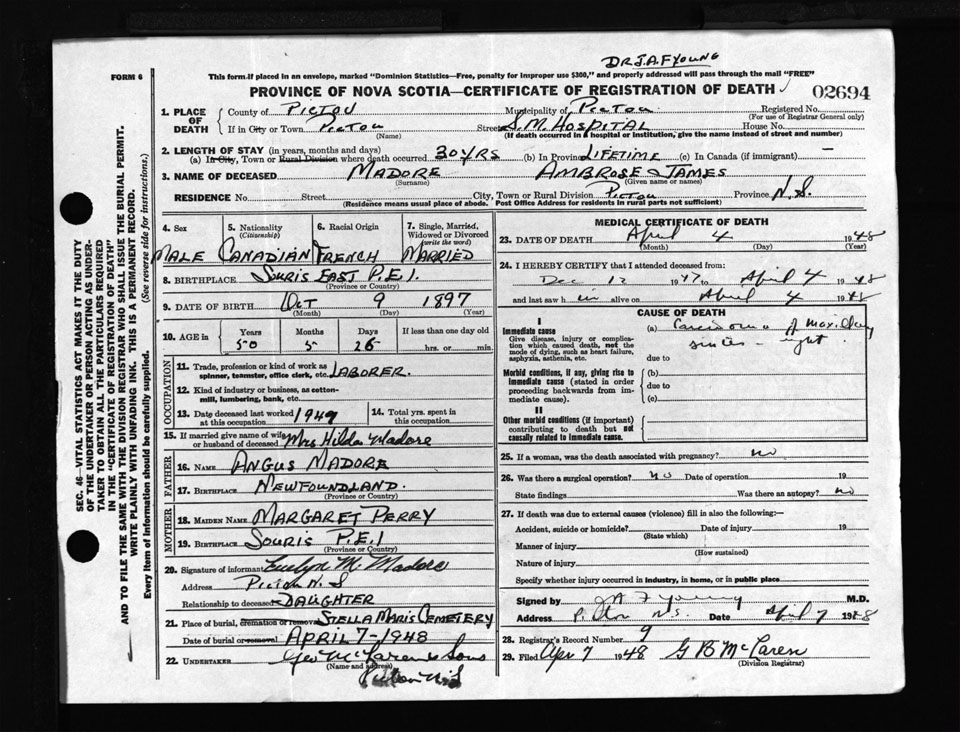 DR J.A.F YOUNG
FORM 6
This form if placed in an envelope, marked "Dominion Statistics—Free, penalty for improper use $300," and properly addressed will pass through the mail "FREE"
PROVINCE OF NOVA SCOTIA—CERTIFICATE OF REGISTRATION OF DEATH
02694
1. PLACE OF DEATH
County of PICTOU Municipality of PICTOU Registered No.
(For use of Registrar General only)
If in City or Town PICTOU Street S.M. HOSPITAL House No.
(Name) (If death occurred in a hospital or institution, give the name instead of street and number)
2. LENGTH OF STAY (in years, months and days)
(a) In City, Town or Rural Division where death occurred 30 YRS (b) In Province LIFETIME (c) In Canada (if immigrant) —
3. NAME OF DECEASED MADORE AMBROSE JAMES
(Surname) (Given name or names)
RESIDENCE No. Street City, Town or Rural Division PICTOU Province N.S.
(Residence means usual place of abode. Post Office Address for residents in rural parts not sufficient)
4. Sex 5. Nationality (Citizenship) 6. Racial Origin 7. Single, Married, Widowed or Divorced (write the word)
MALE CANADIAN FRENCH MARRIED
8. BIRTHPLACE SOURIS EAST P.E.I.
(Province or Country)
9. DATE OF BIRTH Oct 9 1897
(Month) (Day) (Year)
10. AGE Years Months Days If less than one day old
50 5 26 hrs. or min.
OCCUPATION
11. Trade, profession or kind of work as spinner, teamster, office clerk, etc. LABORER.
12. Kind of industry or business, as cotton-mill, lumbering, bank, etc.
13. Date deceased last worked at this occupation 1947 14. Total yrs. spent in this occupation
15. If married give name of wife or husband of deceased Mrs Hilda Madore
FATHER
16. NAME ANGUS MADORE
17. BIRTHPLACE NEWFOUNDLAND.
(Province or Country)
MOTHER
18. MAIDEN NAME MARGARET PERRY
19. BIRTHPLACE SOURIS P.E.I
(Province or Country)
20. Signature of informant Evelyn M. Madore
Address Pictou N.S
Relationship to deceased DAUGHTER
21. Place of burial, cremation or removal STELLA MARIS CEMETERY
Date of burial or removal APRIL 7-1948
22. UNDERTAKER Geo McLaren & Sons
(Name and address)
Pictou N.S
MEDICAL CERTIFICATE OF DEATH
23. DATE OF DEATH April 4 1948
(Month) (Day) (Year)
24. I HEREBY CERTIFY that I attended deceased from:
Dec 12 1947 to April 4 1948
and last saw him alive on April 4 1948
CAUSE OF DEATH
I
Immediate cause
Give disease, injury or complication which caused death, not the mode of dying, such as heart failure, asphyxia, asthenia, etc.
(a) Carcinoma of maxillary
sinus - right
due to
Morbid conditions, if any, giving rise to immediate cause (stated in order proceeding backwards from immediate cause).
(b)
due to
(c)
II
Other morbid conditions (if important) contributing to death but not causally related to immediate cause.
25. If a woman, was the death associated with pregnancy? no
26. Was there a surgical operation? no Date of operation 19
State findings Was there an autopsy? no
27. If death was due to external causes (violence) fill in also the following:—
Accident, suicide or homicide? Date of injury 19
(State which)
Manner of injury
(How sustained)
Nature of injury
Specify whether injury occurred in industry, in home, or in public place
Signed by J A F Young M.D.
Address Pictou N.S. Date April 7 1948
28. Registrar's Record Number 9
29. Filed Apr 7 1948 G B McLaren
(Division Registrar)
SEC. 46—VITAL STATISTICS ACT MAKES IT THE DUTY
OF THE UNDERTAKER OR PERSON ACTING AS UNDER-
TAKER TO OBTAIN ALL THE PARTICULARS REQUIRED
IN THE "CERTIFICATE OF REGISTRATION OF DEATH"
AND TO FILE THE SAME WITH THE DIVISION REGISTRAR WHO SHALL ISSUE THE BURIAL PERMIT.
WRITE PLAINLY WITH UNFADING INK. THIS IS A PERMANENT RECORD.
Every item of information should be carefully supplied. (See reverse side for instructions.)